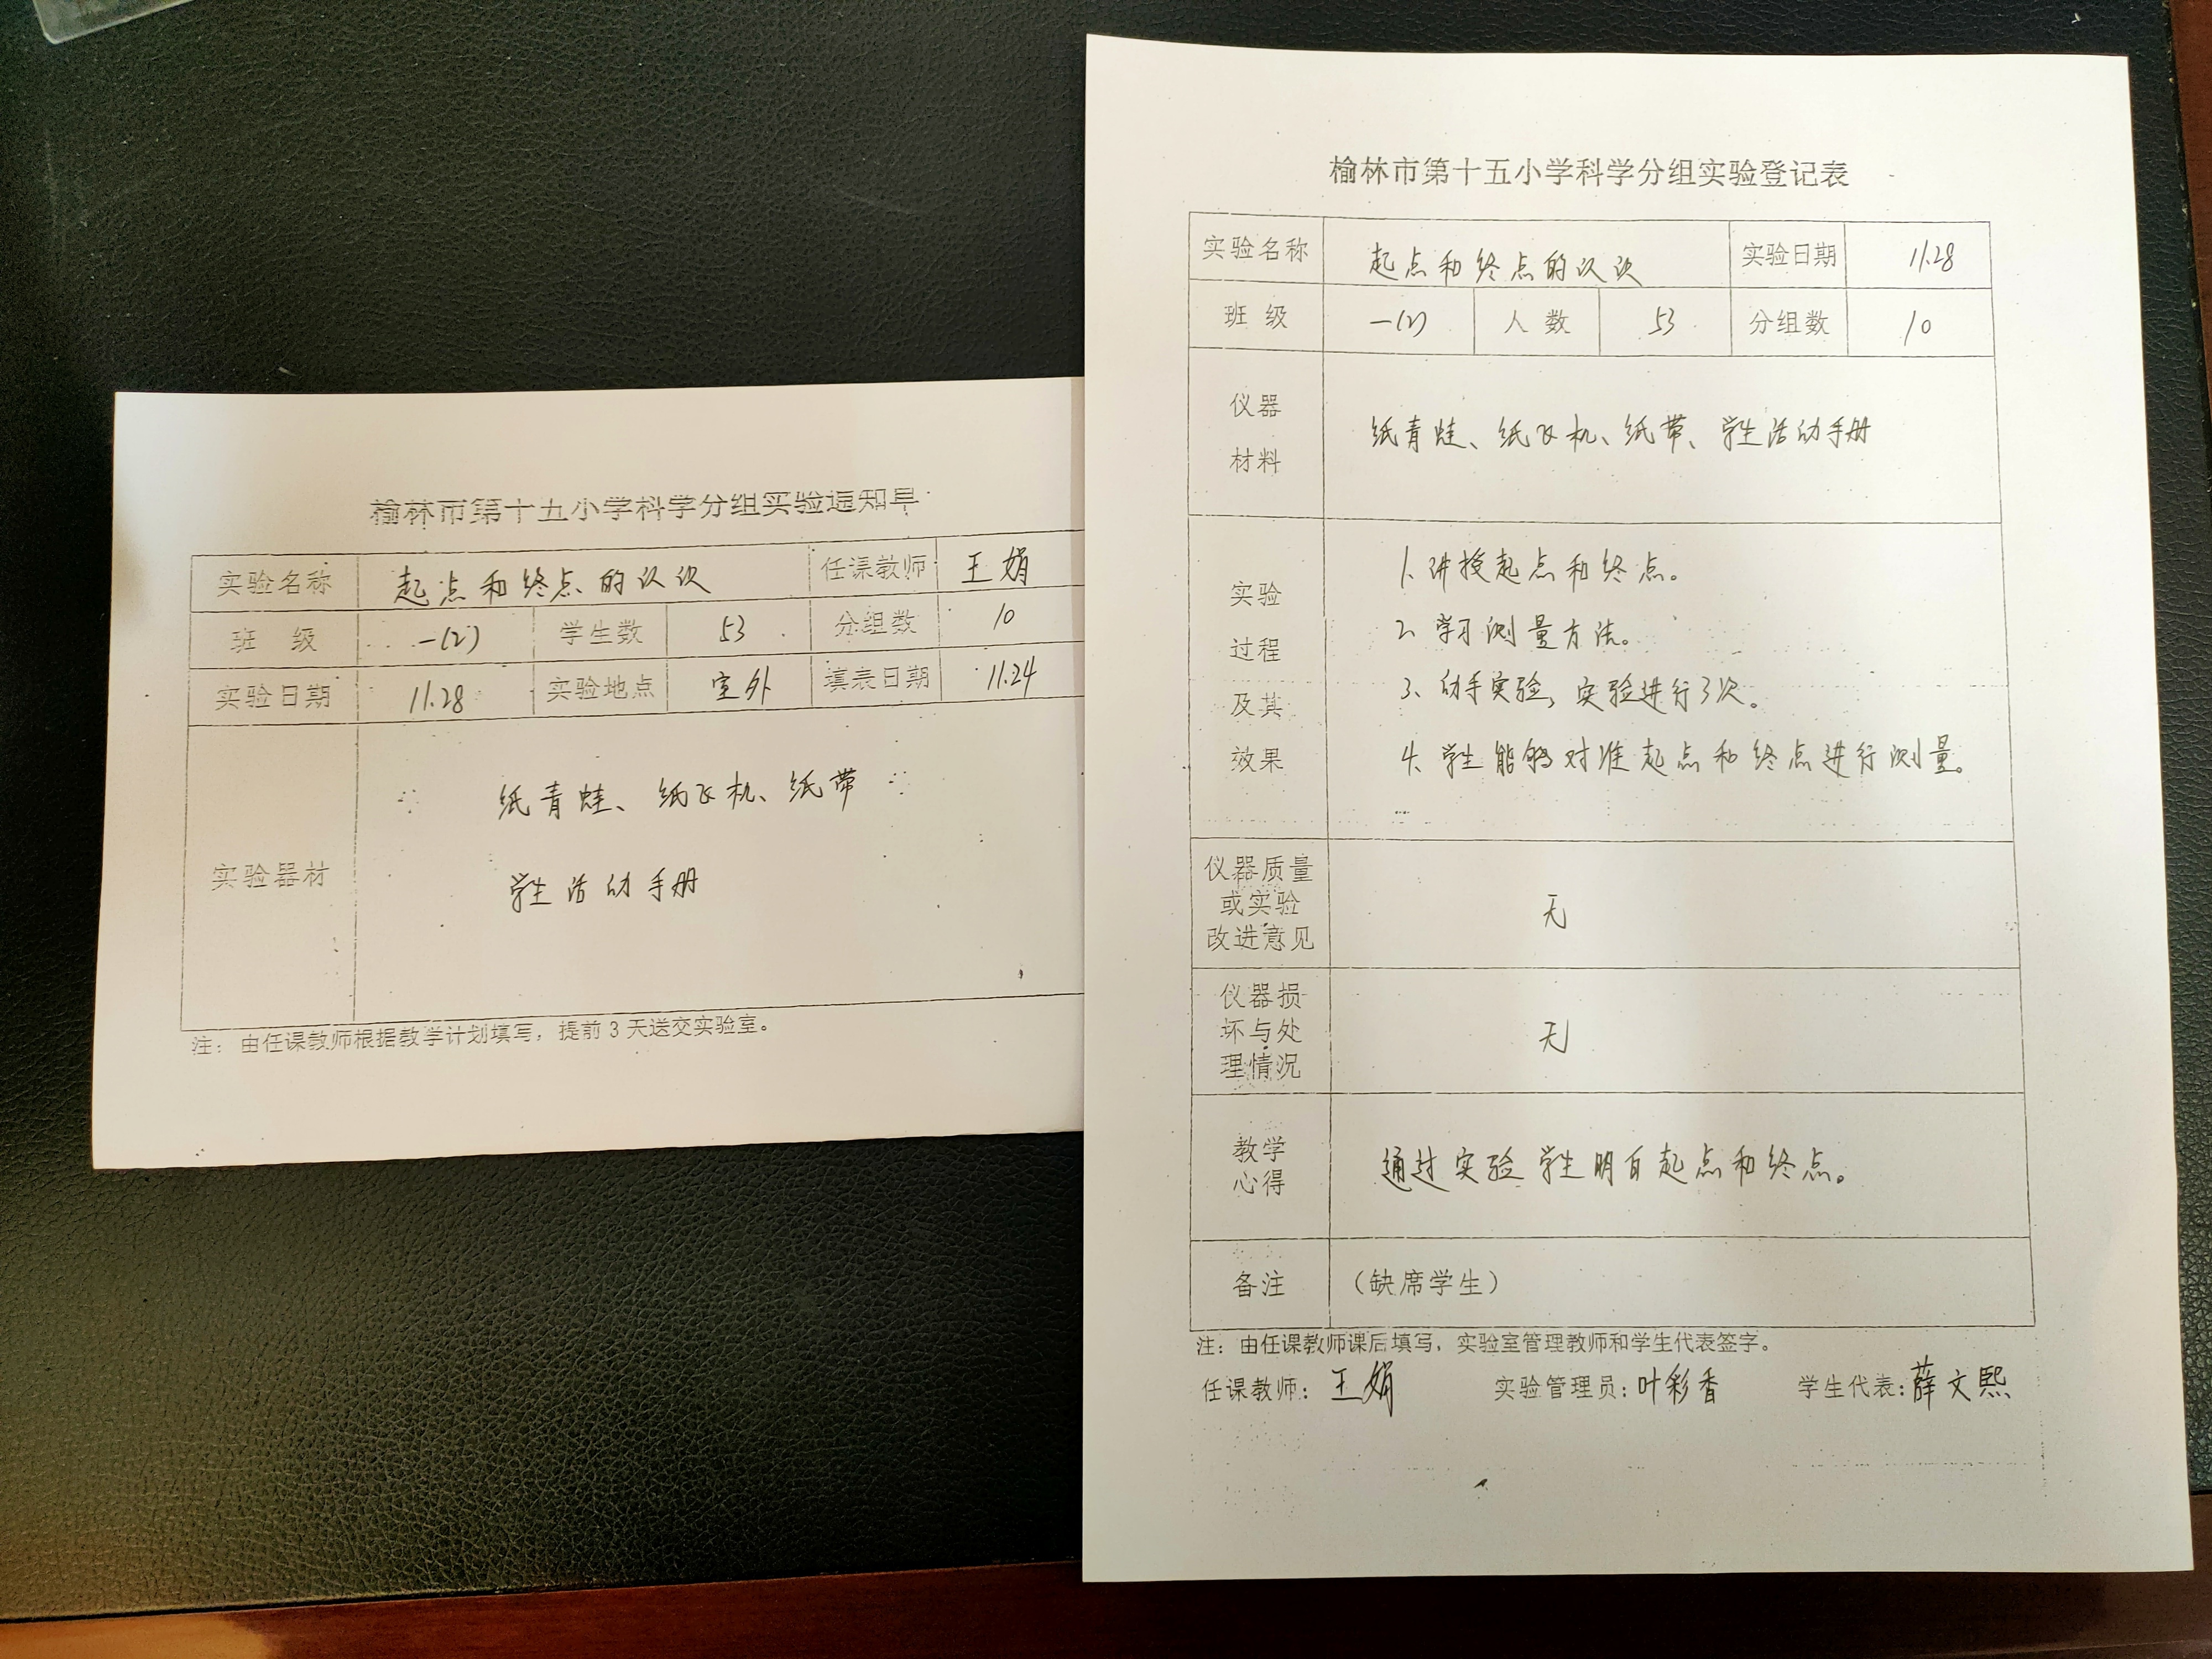 榆林市第十五小学科学分组实验通知单
实验名称 起点和终点的认识 任课教师 王娟
班 级 一(2) 学生数 53 分组数 10
实验日期 11.28 实验地点 室外 填表日期 11.24
实验器材
纸青蛙、纸飞机、纸带
学生活动手册
注：由任课教师根据教学计划填写，提前3天送交实验室。
榆林市第十五小学科学分组实验登记表
实验名称 起点和终点的认识 实验日期 11.28
班 级 一(2) 人 数 53 分组数 10
仪器
材料
纸青蛙、纸飞机、纸带、学生活动手册
实验
过程
及其
效果
1、讲授起点和终点。
2、学习测量方法。
3、动手实验，实验进行3次。
4、学生能够对准起点和终点进行测量。
仪器质量
或实验
改进意见
无
仪器损
坏与处
理情况
无
教学
心得
通过实验学生明白起点和终点。
备注 （缺席学生）
注：由任课教师课后填写，实验室管理教师和学生代表签字。
任课教师：王娟 实验管理员：叶彩香 学生代表：薛文熙